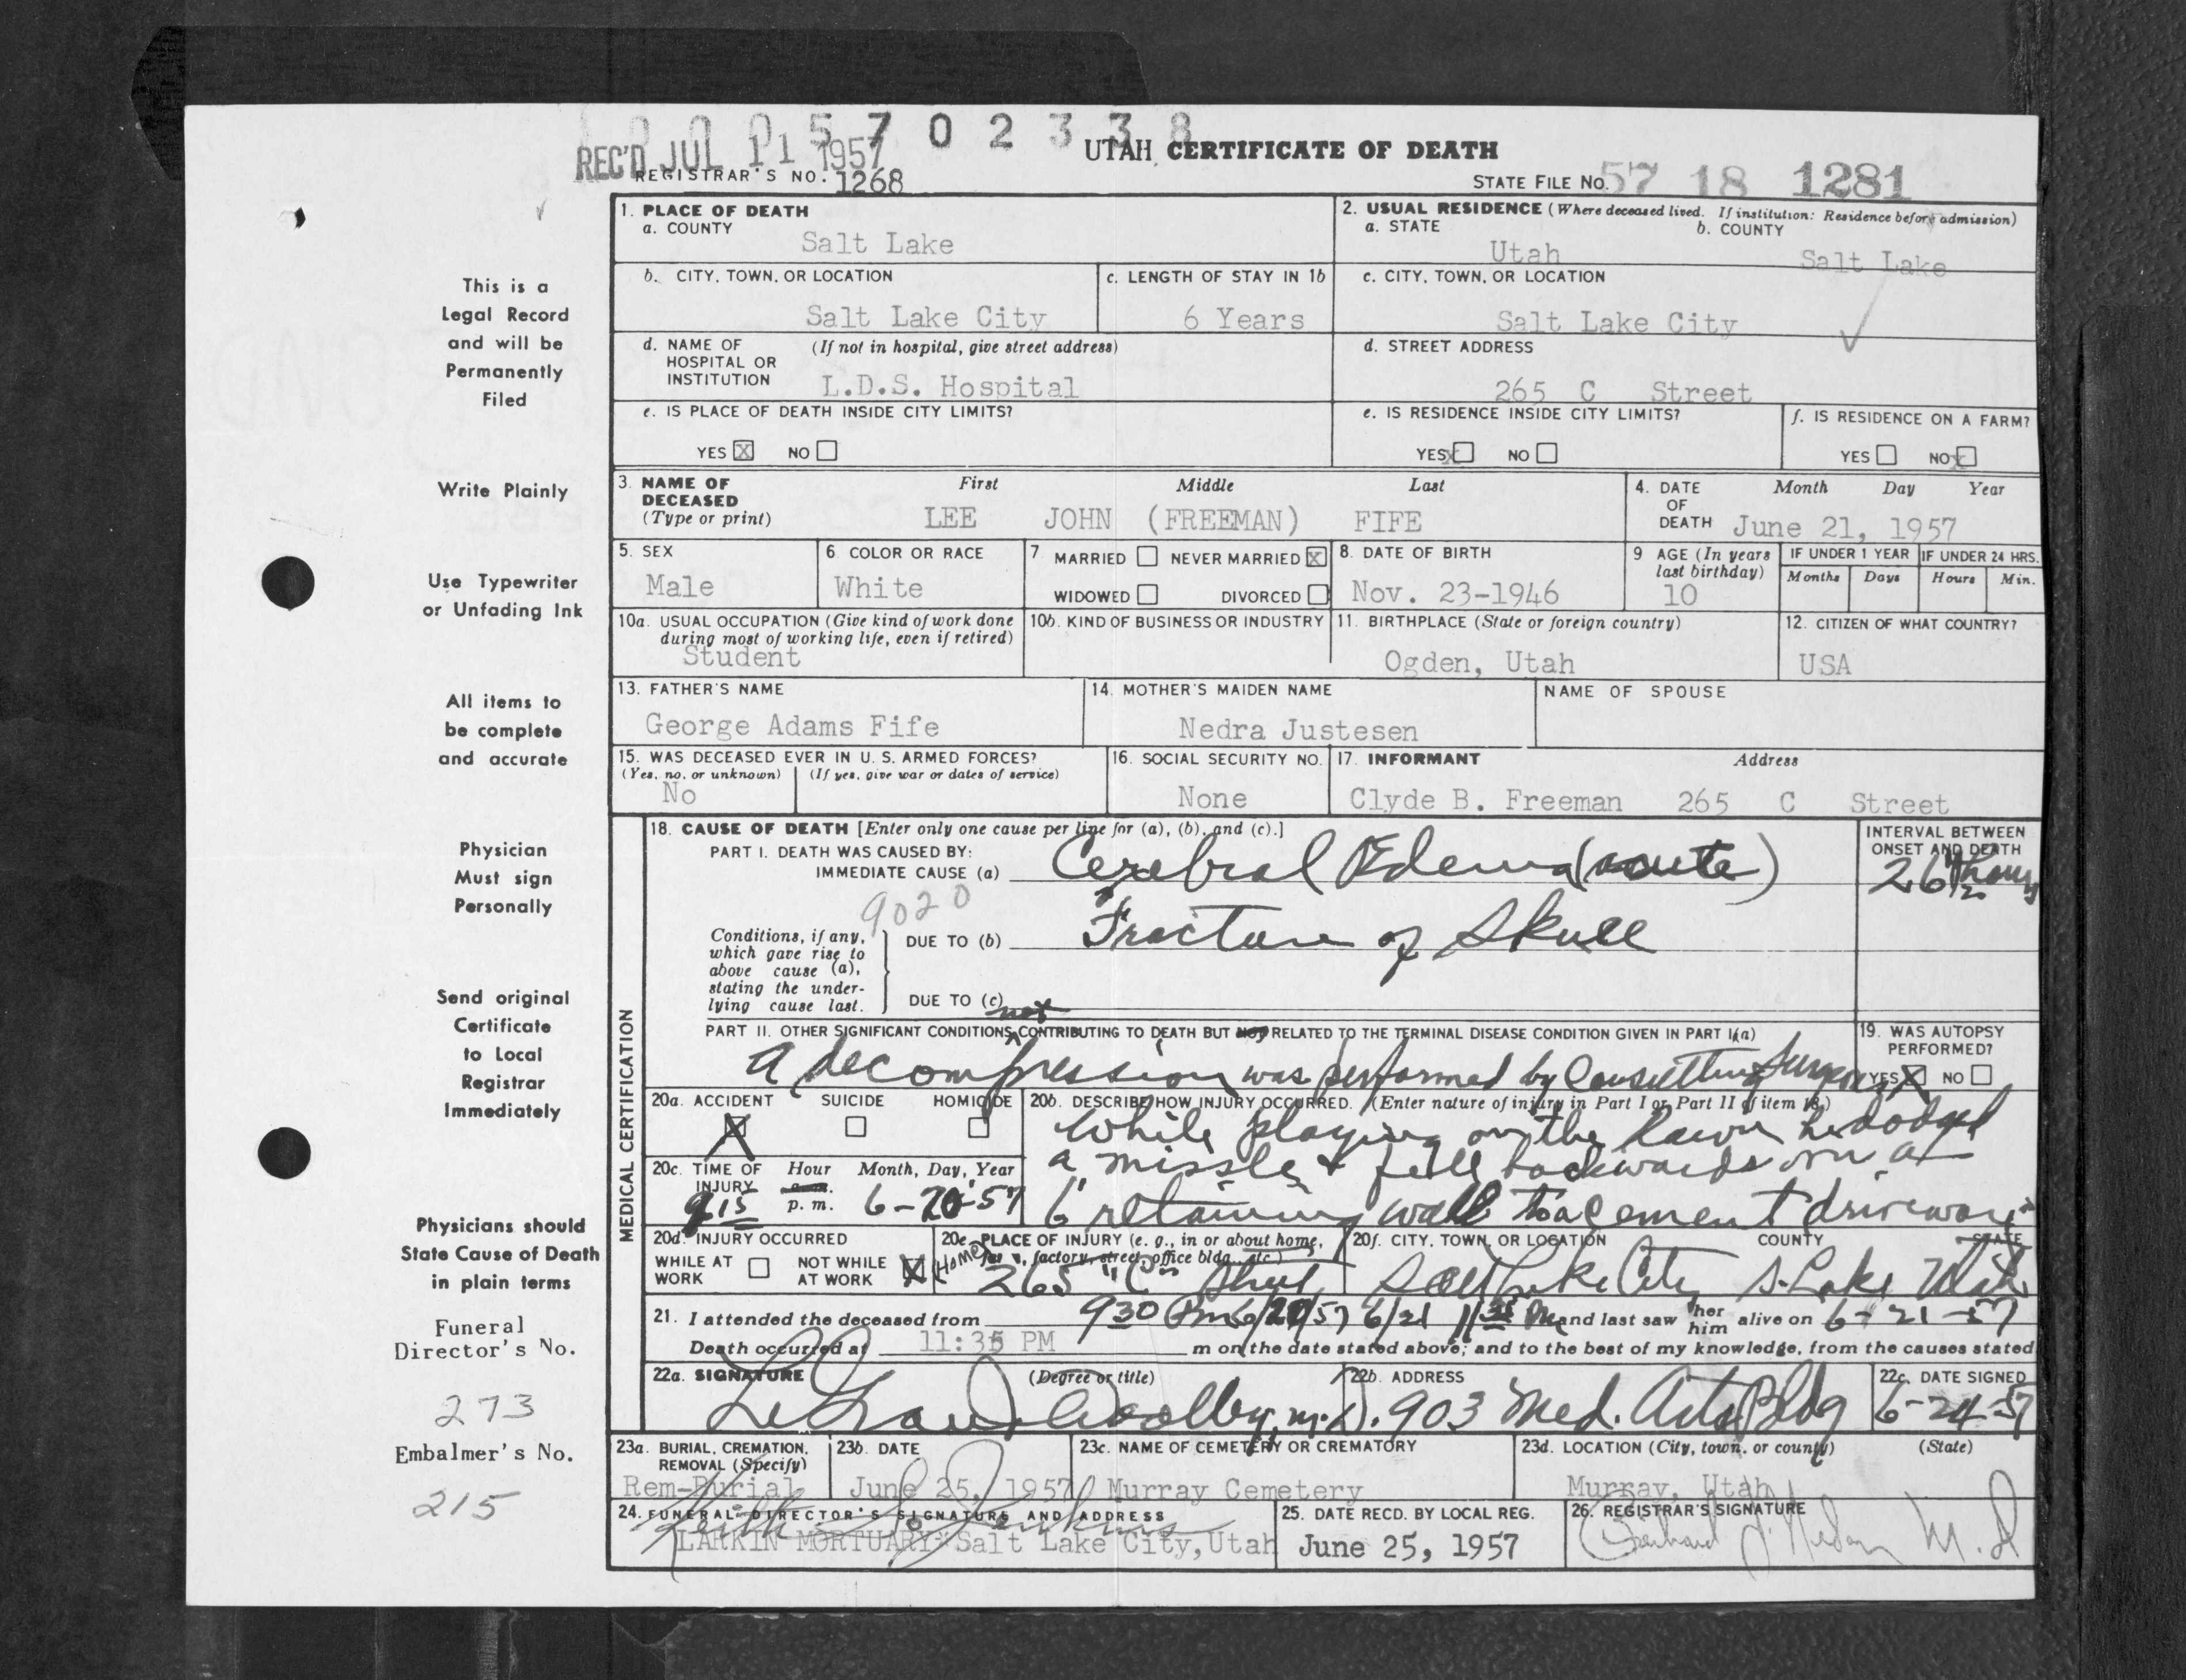 0 0 0 5 7 0 2 3 3 8
REC'D JUL 11 1957
UTAH CERTIFICATE OF DEATH
REGISTRAR'S NO. 1268
STATE FILE NO. 57 18 1281
1. PLACE OF DEATH
a. COUNTY
Salt Lake
2. USUAL RESIDENCE (Where deceased lived. If institution: Residence before admission)
a. STATE b. COUNTY
Utah Salt Lake
b. CITY, TOWN, OR LOCATION
Salt Lake City
c. LENGTH OF STAY IN 1b
6 Years
c. CITY, TOWN, OR LOCATION
Salt Lake City
d. NAME OF HOSPITAL OR INSTITUTION (If not in hospital, give street address)
L.D.S. Hospital
d. STREET ADDRESS
265 C Street
e. IS PLACE OF DEATH INSIDE CITY LIMITS?
YES X NO
e. IS RESIDENCE INSIDE CITY LIMITS?
YES X NO
f. IS RESIDENCE ON A FARM?
YES NO X
3. NAME OF DECEASED (Type or print)
First Middle Last
LEE JOHN (FREEMAN) FIFE
4. DATE OF DEATH
Month Day Year
June 21, 1957
5. SEX
Male
6. COLOR OR RACE
White
7. MARRIED NEVER MARRIED X
WIDOWED DIVORCED
8. DATE OF BIRTH
Nov. 23-1946
9. AGE (In years last birthday)
10
IF UNDER 1 YEAR IF UNDER 24 HRS.
Months Days Hours Min.
10a. USUAL OCCUPATION (Give kind of work done during most of working life, even if retired)
Student
10b. KIND OF BUSINESS OR INDUSTRY
11. BIRTHPLACE (State or foreign country)
Ogden, Utah
12. CITIZEN OF WHAT COUNTRY?
USA
13. FATHER'S NAME
George Adams Fife
14. MOTHER'S MAIDEN NAME
Nedra Justesen
NAME OF SPOUSE
15. WAS DECEASED EVER IN U. S. ARMED FORCES?
(Yes, no, or unknown) (If yes, give war or dates of service)
No
16. SOCIAL SECURITY NO.
None
17. INFORMANT Address
Clyde B. Freeman 265 C Street
MEDICAL CERTIFICATION
18. CAUSE OF DEATH [Enter only one cause per line for (a), (b), and (c).]
PART I. DEATH WAS CAUSED BY:
IMMEDIATE CAUSE (a) Cerebral Edema (acute)
INTERVAL BETWEEN ONSET AND DEATH
26 1/2 hours
9020
Conditions, if any, which gave rise to above cause (a), stating the underlying cause last.
DUE TO (b) Fracture of Skull
DUE TO (c)
not
PART II. OTHER SIGNIFICANT CONDITIONS CONTRIBUTING TO DEATH BUT NOT RELATED TO THE TERMINAL DISEASE CONDITION GIVEN IN PART I(a)
A decompression was performed by Consulting Surgeon
19. WAS AUTOPSY PERFORMED?
YES X NO
20a. ACCIDENT SUICIDE HOMICIDE
X
20b. DESCRIBE HOW INJURY OCCURRED. (Enter nature of injury in Part I or Part II of item 18.)
While playing on the lawn he dodged
a missle & fell backwards over a
6' retaining wall to a cement driveway
20c. TIME OF INJURY Hour Month, Day, Year
a. m.
9 15 p. m. 6-20-57
20d. INJURY OCCURRED
WHILE AT WORK NOT WHILE AT WORK X
20e. PLACE OF INJURY (e. g., in or about home, farm, factory, street, office bldg., etc.)
(Home) 265 "C" Street
20f. CITY, TOWN, OR LOCATION COUNTY STATE
Salt Lake City S. Lake Utah
21. I attended the deceased from 9 30 Pm 6/20/57 6/21 11 35 PM and last saw her him alive on 6-21-57
Death occurred at 11:35 PM m on the date stated above; and to the best of my knowledge, from the causes stated
22a. SIGNATURE (Degree or title)
LeGrand Woolley, M.D.
22b. ADDRESS
903 Med. Arts Bldg
22c. DATE SIGNED
6-24-57
23a. BURIAL, CREMATION, REMOVAL (Specify)
Rem-Burial
23b. DATE
June 25, 1957
23c. NAME OF CEMETERY OR CREMATORY
Murray Cemetery
23d. LOCATION (City, town, or county) (State)
Murray, Utah
24. FUNERAL DIRECTOR'S SIGNATURE AND ADDRESS
LARKIN MORTUARY Salt Lake City, Utah
25. DATE RECD. BY LOCAL REG.
June 25, 1957
26. REGISTRAR'S SIGNATURE
M.D
This is a
Legal Record
and will be
Permanently
Filed
Write Plainly
Use Typewriter
or Unfading Ink
All items to
be complete
and accurate
Physician
Must sign
Personally
Send original
Certificate
to Local
Registrar
Immediately
Physicians should
State Cause of Death
in plain terms
Funeral
Director's No.
273
Embalmer's No.
215